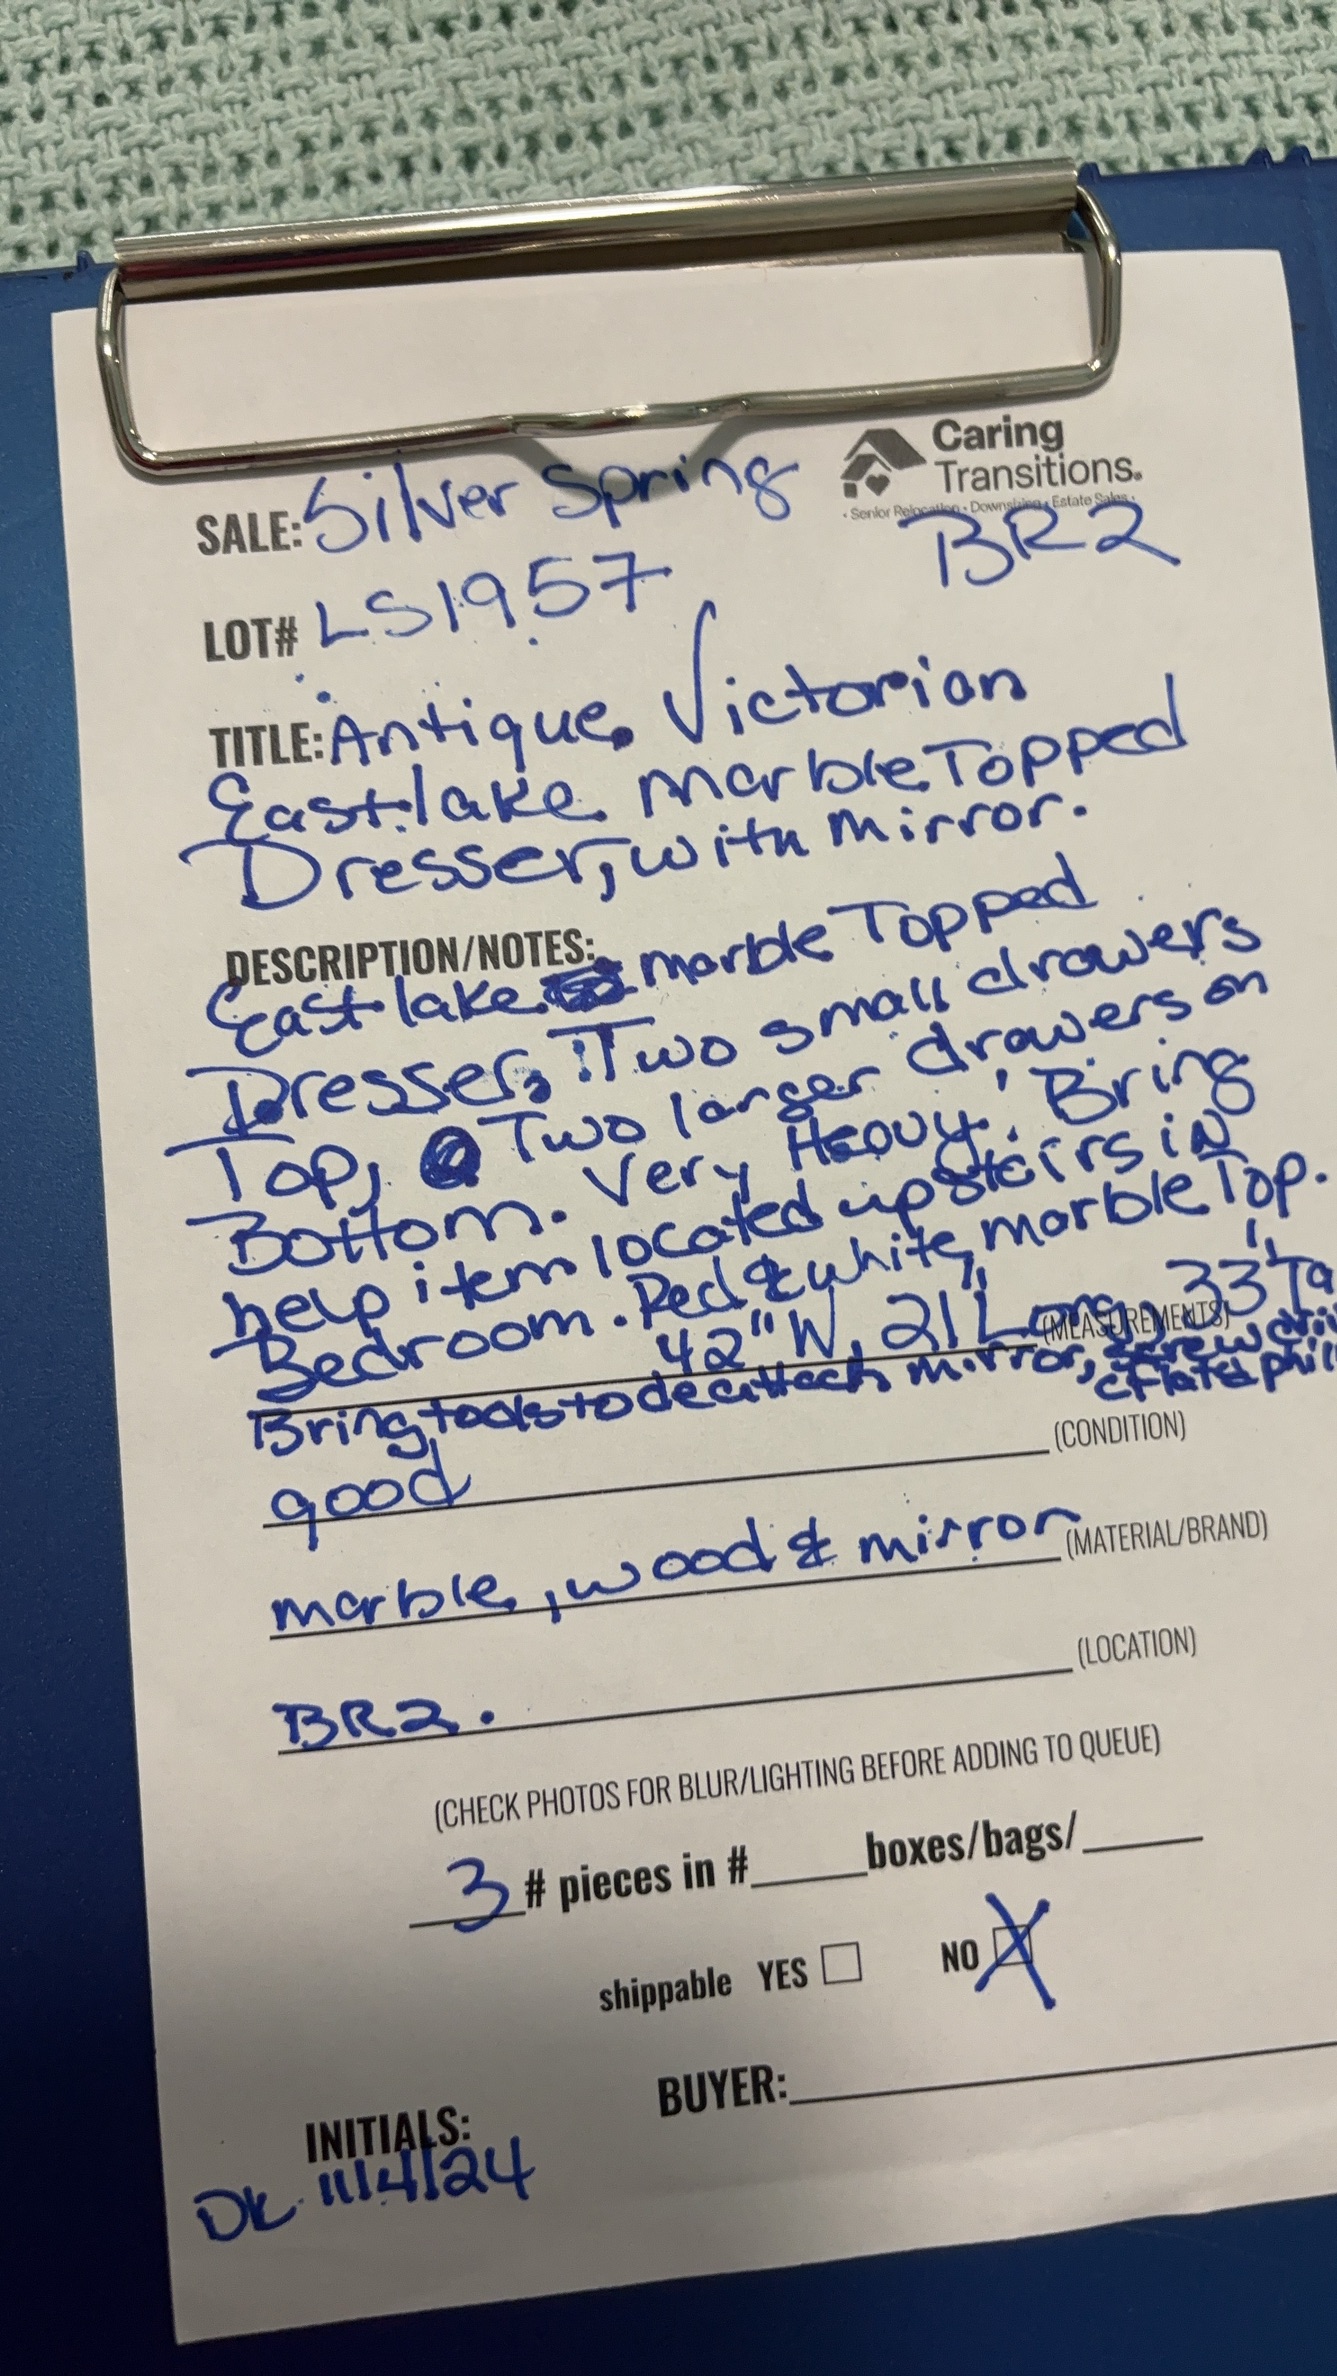 Caring
Transitions.
• Senior Relocation • Downsizing • Estate Sales •
SALE: Silver Spring
BR2
LOT# LS1957
TITLE: Antique Victorian
Eastlake Marble Topped
Dresser, with mirror.
DESCRIPTION/NOTES:
Eastlake marble Topped
Dresser, Two small drawers
Top, Two larger drawers on
Bottom. Very Heavy. Bring
help item located upstairs in
Bedroom. Red & white marble Top.
42" W, 21" Long, 33" Ta
(MEASUREMENTS)
Bring tools to deattach mirror, screwdri
cflat & phil
good (CONDITION)
marble, wood & mirror (MATERIAL/BRAND)
BR2. (LOCATION)
(CHECK PHOTOS FOR BLUR/LIGHTING BEFORE ADDING TO QUEUE)
3 # pieces in #____boxes/bags/____
shippable YES NO X
BUYER:
INITIALS:
DK 11/4/24